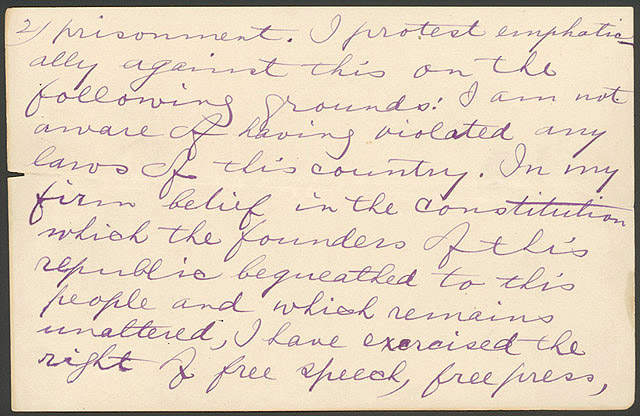 2) prisonment. I protest emphatic-
ally against this on the
following grounds: I am not
aware of having violated any
laws of this country. In my
firm belief in the constitution
which the founders of this
republic bequeathed to this
people and which remains
unaltered, I have exercised the
right of free speech, free press,